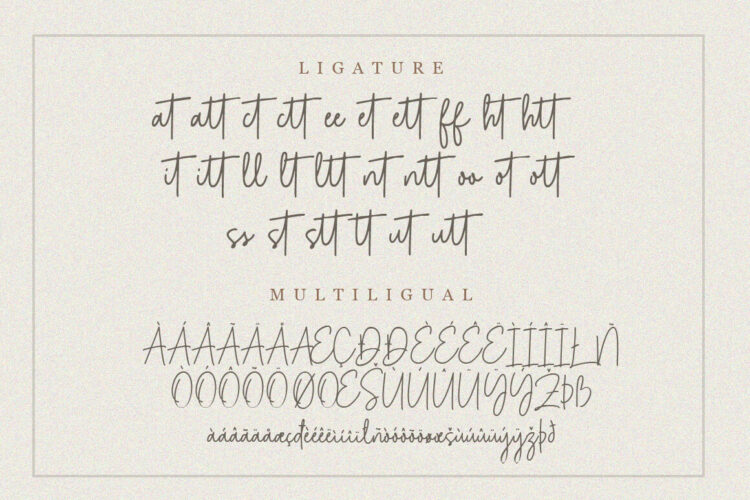 LIGATURE
at att ct ctt ee et ett ff ht htt
it itt ll lt ltt nt ntt oo ot ott
ss st stt tt ut utt
MULTILIGUAL
ÀÁÂÃÄÅÆÇĐÐÈÉÊËÌÍÎÏŁÑ
ÒÓÔÕÖØŒŠÙÚÛÜỲÝŸŽÞß
àáâãäåæçđèéêëìíîïłñòóôõöøœšùúûüỳýÿžþð